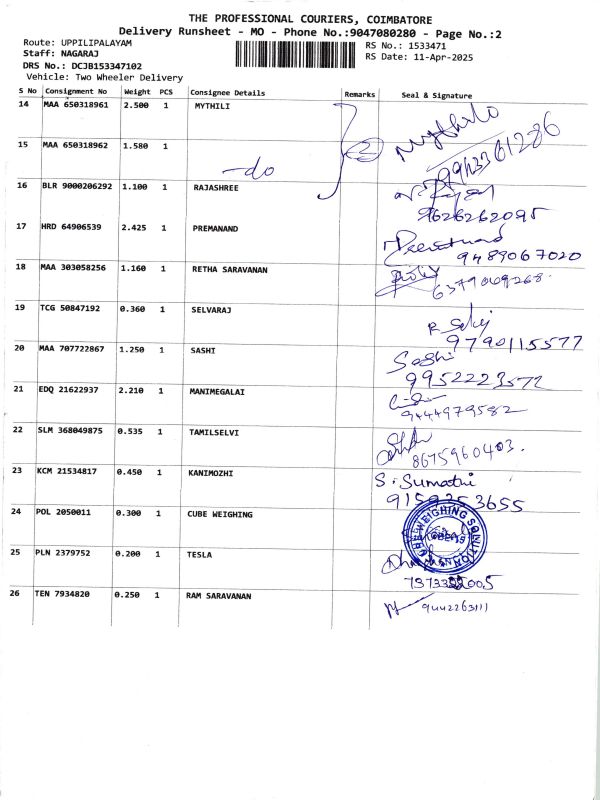 THE PROFESSIONAL COURIERS, COIMBATORE
Delivery Runsheet - MO - Phone No.:9047080280 - Page No.:2
Route: UPPILIPALAYAM RS No.: 1533471
Staff: NAGARAJ RS Date: 11-Apr-2025
DRS No.: DCJB153347102
Vehicle: Two Wheeler Delivery
S No Consignment No Weight PCS Consignee Details Remarks Seal & Signature
14 MAA 650318961 2.500 1 MYTHILI Mythili
15 MAA 650318962 1.580 1 2 9943361286
-do
16 BLR 9000206292 1.100 1 RAJASHREE
9626262095
17 HRD 64906539 2.425 1 PREMANAND Premanand
9489067020
18 MAA 303058256 1.160 1 RETHA SARAVANAN
6379069268
19 TCG 50847192 0.360 1 SELVARAJ
9790115577
20 MAA 707722867 1.250 1 SASHI Sashi
9952223572
21 EDQ 21622937 2.210 1 MANIMEGALAI
9444979582
22 SLM 368049875 0.535 1 TAMILSELVI
8675960403.
23 KCM 21534817 0.450 1 KANIMOZHI S. Sumathi
9159253655
24 POL 2050011 0.300 1 CUBE WEIGHING WEIGHING SOLUTION
25 PLN 2379752 0.200 1 TESLA
26 TEN 7934820 0.250 1 RAM SARAVANAN 9442263111